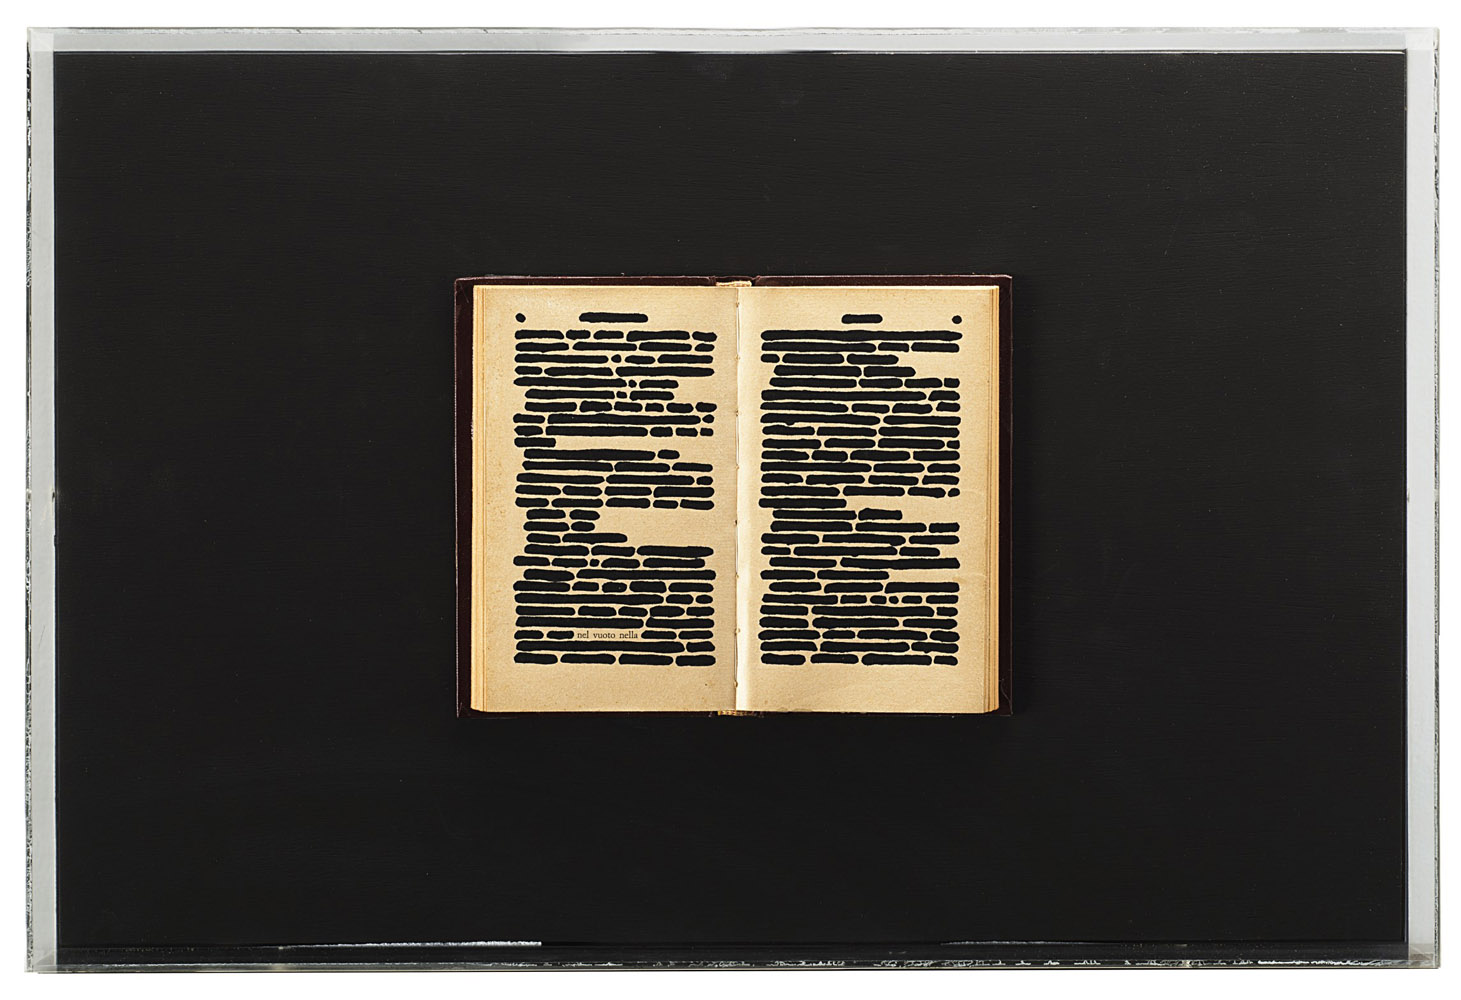 nel vuoto nella